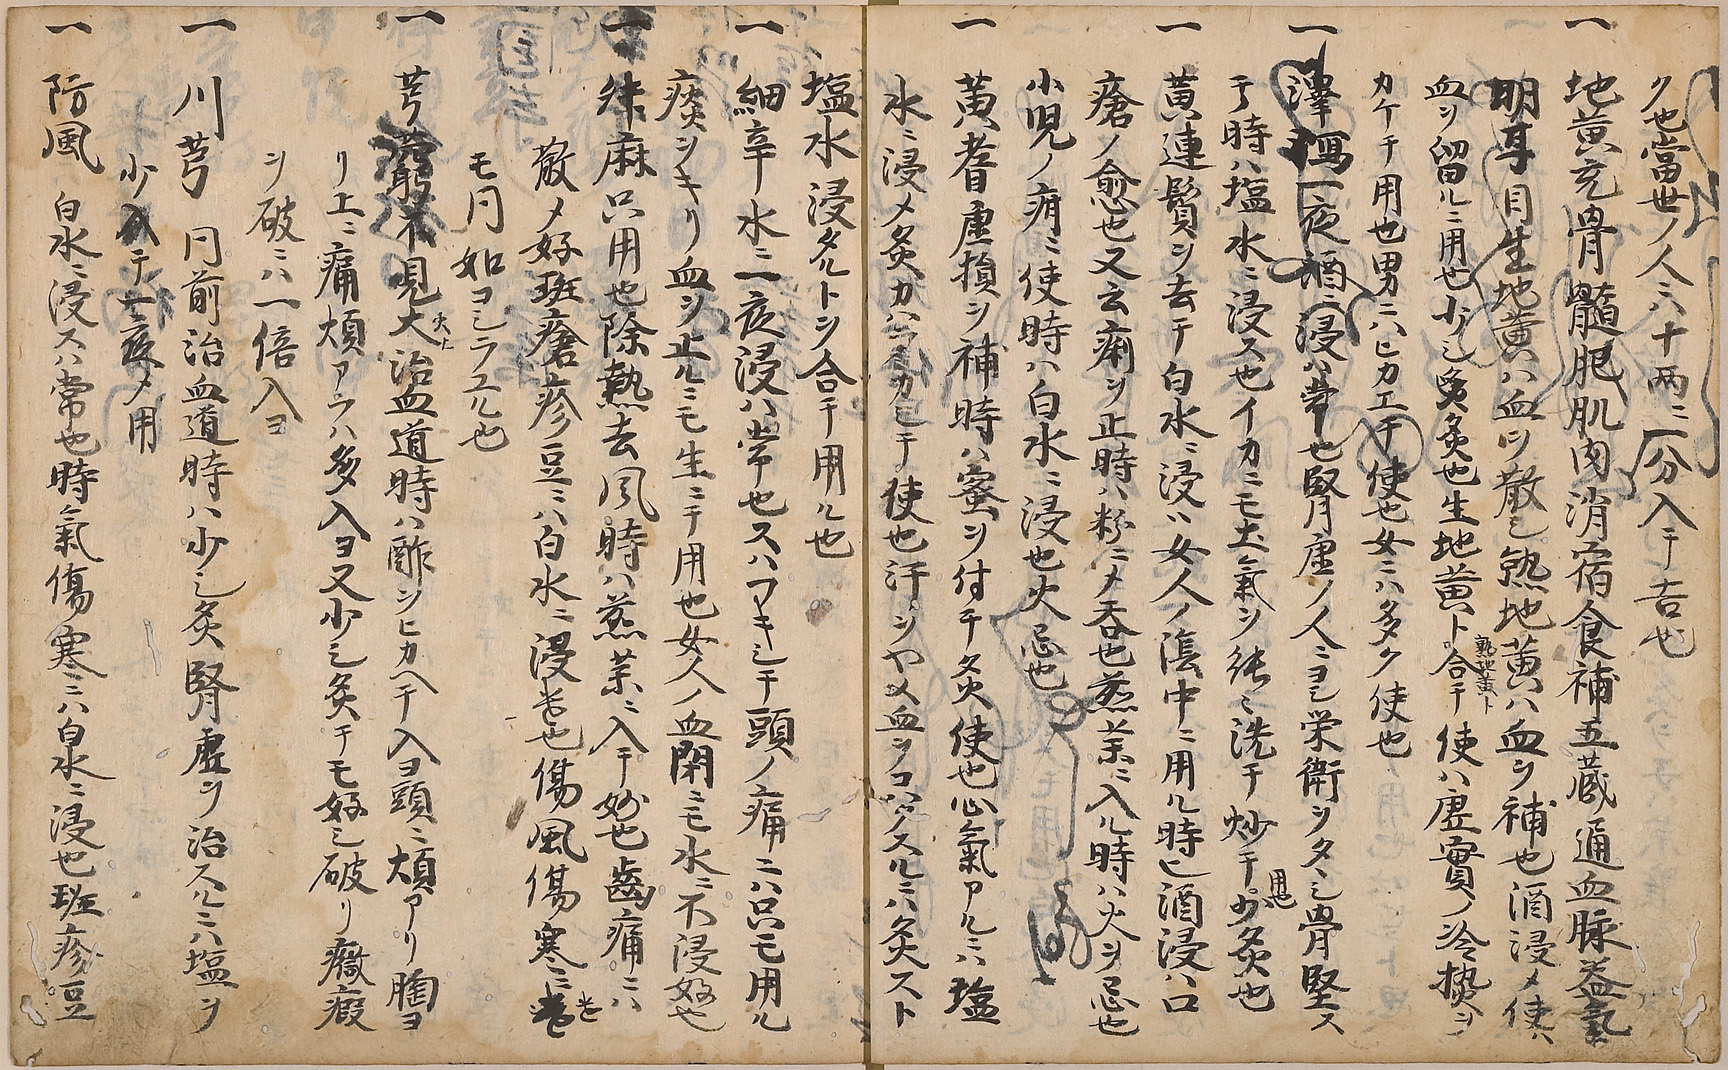 ク也當世ノ人ニハ十両ニ一分入テ吉也
一 地黄充骨髓肥肌肉消宿食補五蔵通血脉益氣
明耳目生地黄ハ血ヲ散シ熟地黄ハ血ヲ補也酒浸メ使ハ
血ヲ留ルニ用也少シ炙也生地黄ト合テ使ハ虚實ノ冷熱ヲ
熟地黄ト
カケテ用也男ニハヒカエテ使也女ニハ多ク使也
一 澤瀉一夜酒ニ浸ハ常也腎虚ノ人ニヨシ栄衛ヲタシ骨堅ス
テ時ハ塩水ニ浸ス也イカニモ土氣ヲ能ミ洗テ炒テ少炙也
用也
一 黄連鬚ヲ去テ白水ニ浸ハ女人ノ陰中ニ用ル時ヒ酒浸ハ口
瘡ノ愈也又云痢ヲ止時ハ粉ニメ呑也煎茶ニ入ル時ハ火ヲ忌也
小児ノ疳ニ使時ハ白水ニ浸也火忌也
一 黄耆虚損ヲ補時ハ蜜ヲ付テ炙使也心氣アルニハ塩
水ニ浸メ炙カハラカシテ使也汗ヲヤメ血ヲコハクスルニハ炙スト
塩水浸タルトヲ合テ用ル也
一 細辛水ニ一夜浸ハ常也スハフキシテ頭ノ痛ニハ只モ用ル
痰ヲキリ血ヲ止ルニモ生ニテ用也女人ノ血閉ニモ水ニ不浸好也
一 升麻只用也除熱去風時ハ煎茶ニ入テ妙也齒痛ニハ
散メ好班瘡疹豆ニハ白水ニ浸也傷風傷寒ニモ
モ同如ヨシラエル也
一 芎窮不見火治血道時ハ酢ヲヒカヘテ入ヨ頭ニ煩アリ胸ヨ
リ上ニ痛煩アラハ多入ヨ又少シ炙テモ好シ破リ癥瘕
ヲ破ニハ一倍入ヨ
一 川芎 同前治血道時ハ少シ炙腎虚ヲ治スルニハ塩ヲ
少入テ一夜メ用
一 防風 白水ニ浸スハ常也時氣傷寒ニハ白水ニ浸也班疹豆